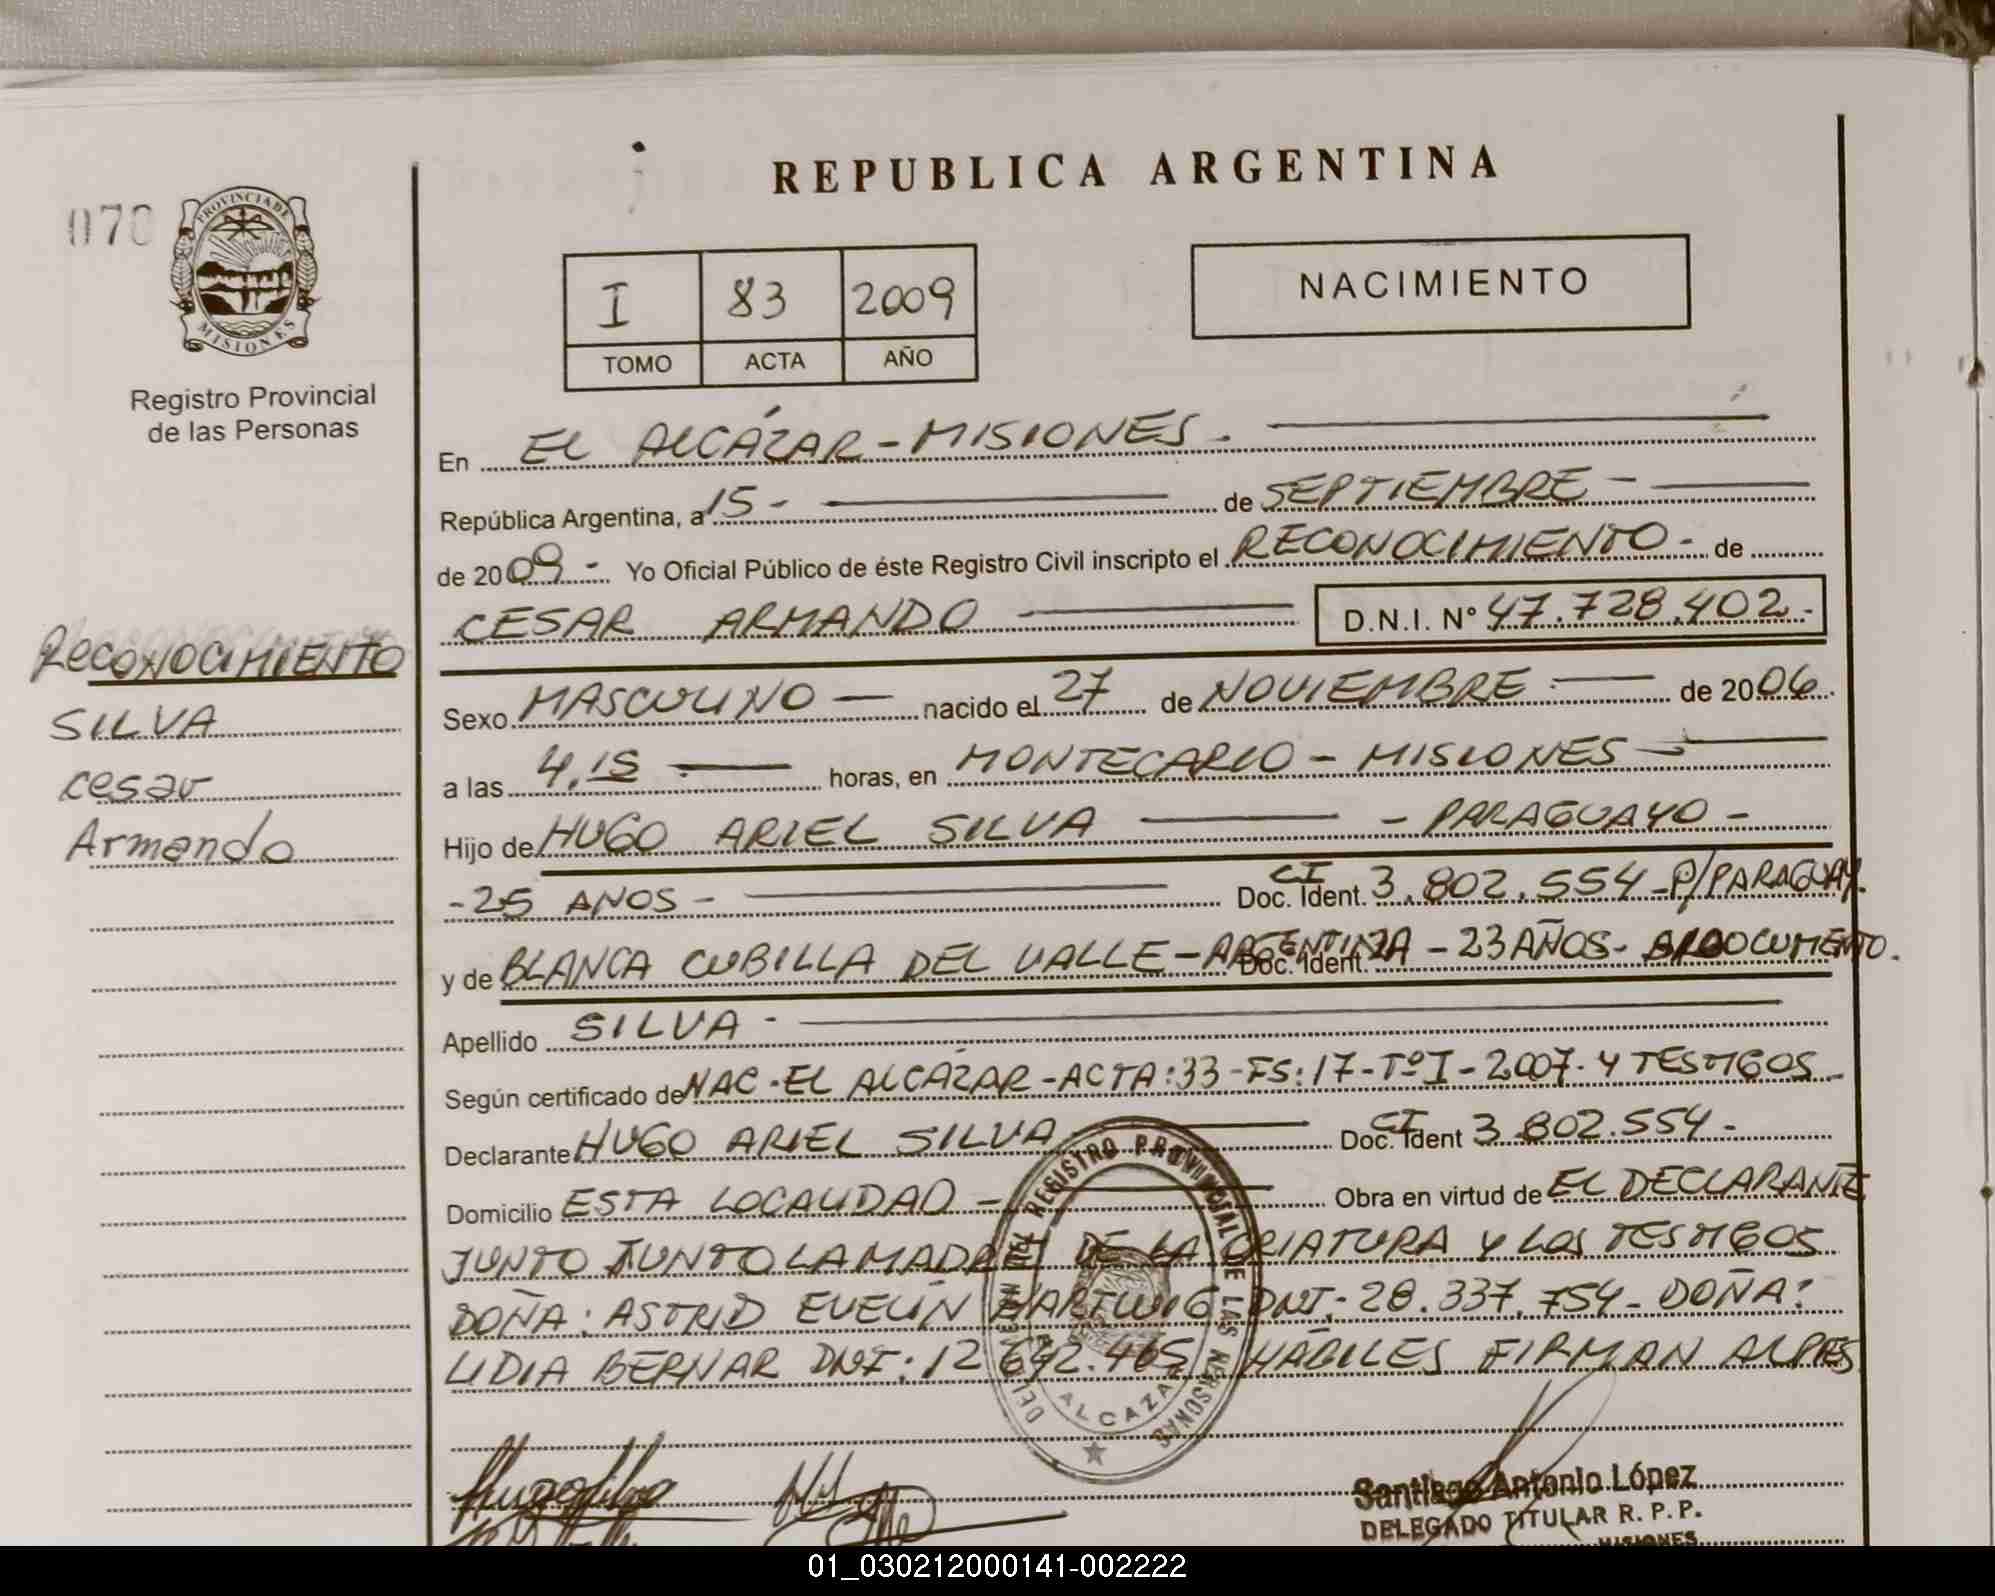 REPUBLICA ARGENTINA
PROVINCIA DE
MISIONES
Registro Provincial
de las Personas
I 83 2009
TOMO ACTA AÑO
NACIMIENTO
En EL ALCÁZAR - MISIONES.
República Argentina, a 15 - de SEPTIEMBRE -
de 2009 - Yo Oficial Público de éste Registro Civil inscripto el RECONOCIMIENTO - de
CESAR ARMANDO D.N.I. Nº 47.728.402.-
RECONOCIMIENTO
SILVA
Cesar
Armando
Sexo MASCULINO — nacido el 27 de NOVIEMBRE de 2006.
a las 4,15 horas, en MONTECARLO - MISIONES
Hijo de HUGO ARIEL SILVA - PARAGUAYO -
-25 AÑOS - Doc. Ident. CI 3.802.554 - P/PARAGUAY.
y de BLANCA CUBILLA DEL VALLE - ARGENTINA - 23 AÑOS - Doc. Ident. DOCUMENTO.
Apellido SILVA -
Según certificado de NAC. EL ALCÁZAR - ACTA: 33 - FS: 17 - Tº I - 2007. Y TESTIGOS
Declarante HUGO ARIEL SILVA Doc. Ident CI 3.802.554 -
Domicilio ESTA LOCALIDAD - Obra en virtud de EL DECLARANTE
JUNTO JUNTO LA MADRE DE LA CRIATURA Y LOS TESTIGOS
DOÑA: ASTRID EVELIN HARTWIG DNI.- 28.337.754 - DOÑA:
LIDIA BERNAR DNI: 12 642.465 HÁBILES FIRMAN AL PIE
DEL REGISTRO PROVINCIAL DE LAS PERSONAS
ALCAZAR
Santiago Antonio López
DELEGADO TITULAR R. P. P.
MISIONES
01_030212000141-002222